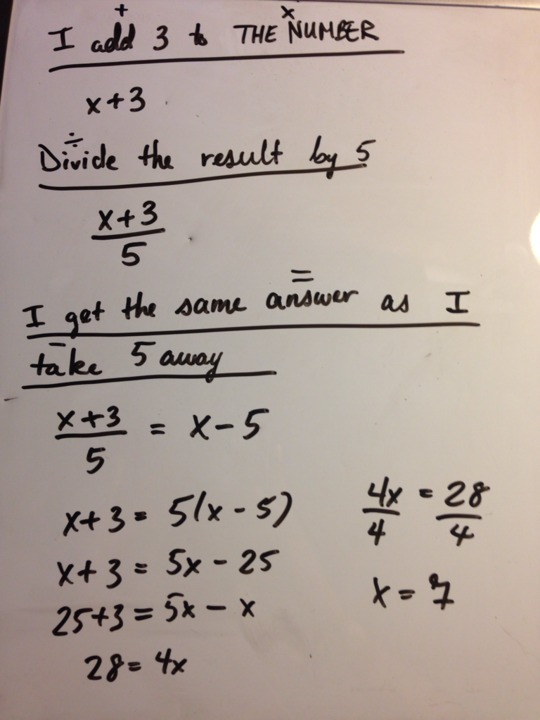 + x
I add 3 to THE NUMBER
x+3
÷
Divide the result by 5
x+3
5
=
I get the same answer as I
−
take 5 away
x+3
5 = x-5
x+3 = 5(x-5)
x+3 = 5x-25
25+3 = 5x-x
28 = 4x
4x = 28
4 4
x = 7